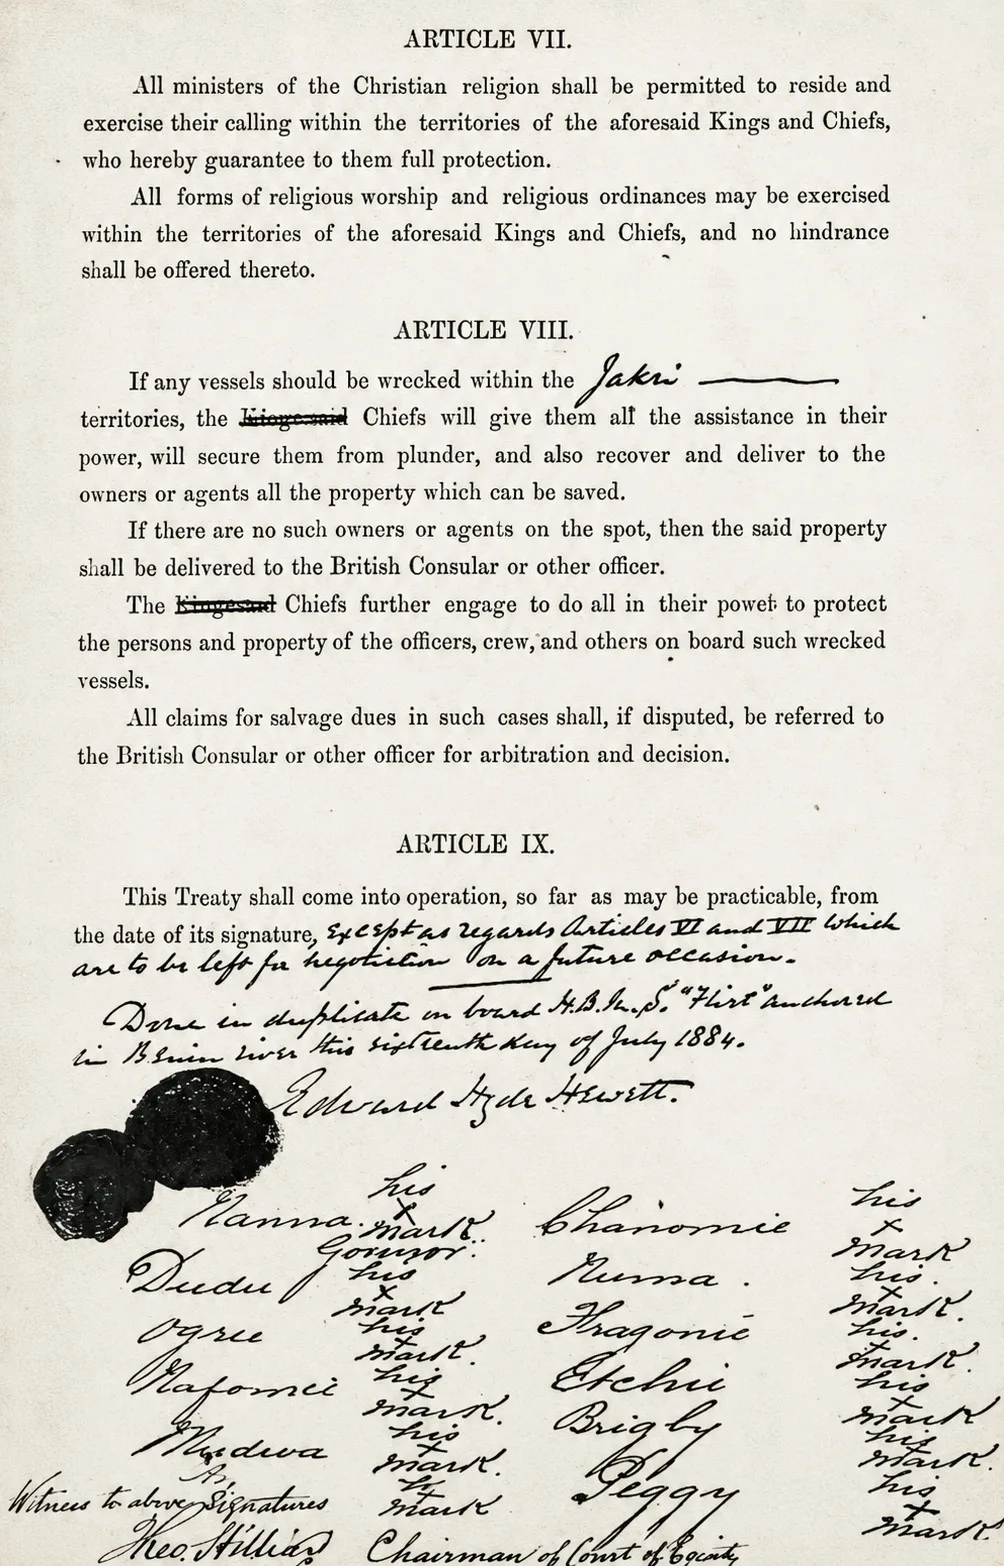 ARTICLE VII.
All ministers of the Christian religion shall be permitted to reside and
exercise their calling within the territories of the aforesaid Kings and Chiefs,
who hereby guarantee to them full protection.
All forms of religious worship and religious ordinances may be exercised
within the territories of the aforesaid Kings and Chiefs, and no hindrance
shall be offered thereto.
ARTICLE VIII.
If any vessels should be wrecked within the Jakri
territories, the Chiefs will give them all the assistance in their
power, will secure them from plunder, and also recover and deliver to the
owners or agents all the property which can be saved.
If there are no such owners or agents on the spot, then the said property
shall be delivered to the British Consular or other officer.
The Chiefs further engage to do all in their power to protect
the persons and property of the officers, crew, and others on board such wrecked
vessels.
All claims for salvage dues in such cases shall, if disputed, be referred to
the British Consular or other officer for arbitration and decision.
ARTICLE IX.
This Treaty shall come into operation, so far as may be practicable, from
the date of its signature, except as regards Articles VI and VII which
are to be left for negotiation on a future occasion.
Done in duplicate on board H.B.M.S. "Flirt" anchored
in Benin river this sixteenth day of July 1884.
Edward Hyde Hewett.
his
Nanna. x Chanomie his x
mark. mark
Governor.
Dudu his x mark Numa. his x mark.
Ogree his x mark. Fragonie his. x mark.
Nafomie his x mark. Etchie his x mark
his x mark. Brigby his x mark.
mark Peggy his x mark.
Witness to above Signatures
Theo. Chairman of Court of Equity